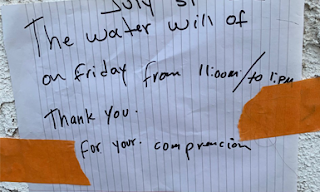 July 31
The water will of
on friday from 11:00am/to 1:pm
Thank you.
For your. comprencion